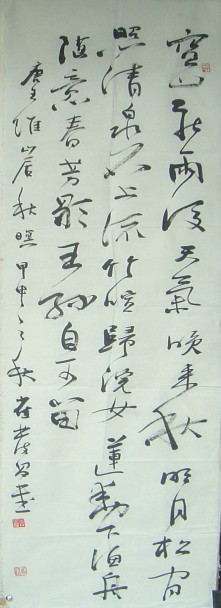 空山新雨後天氣晚来秋明月松間
照清泉石上流竹喧歸浣女蓮動下漁舟
随意春芳歇王孫自可留
唐王維山居秋暝甲申之秋